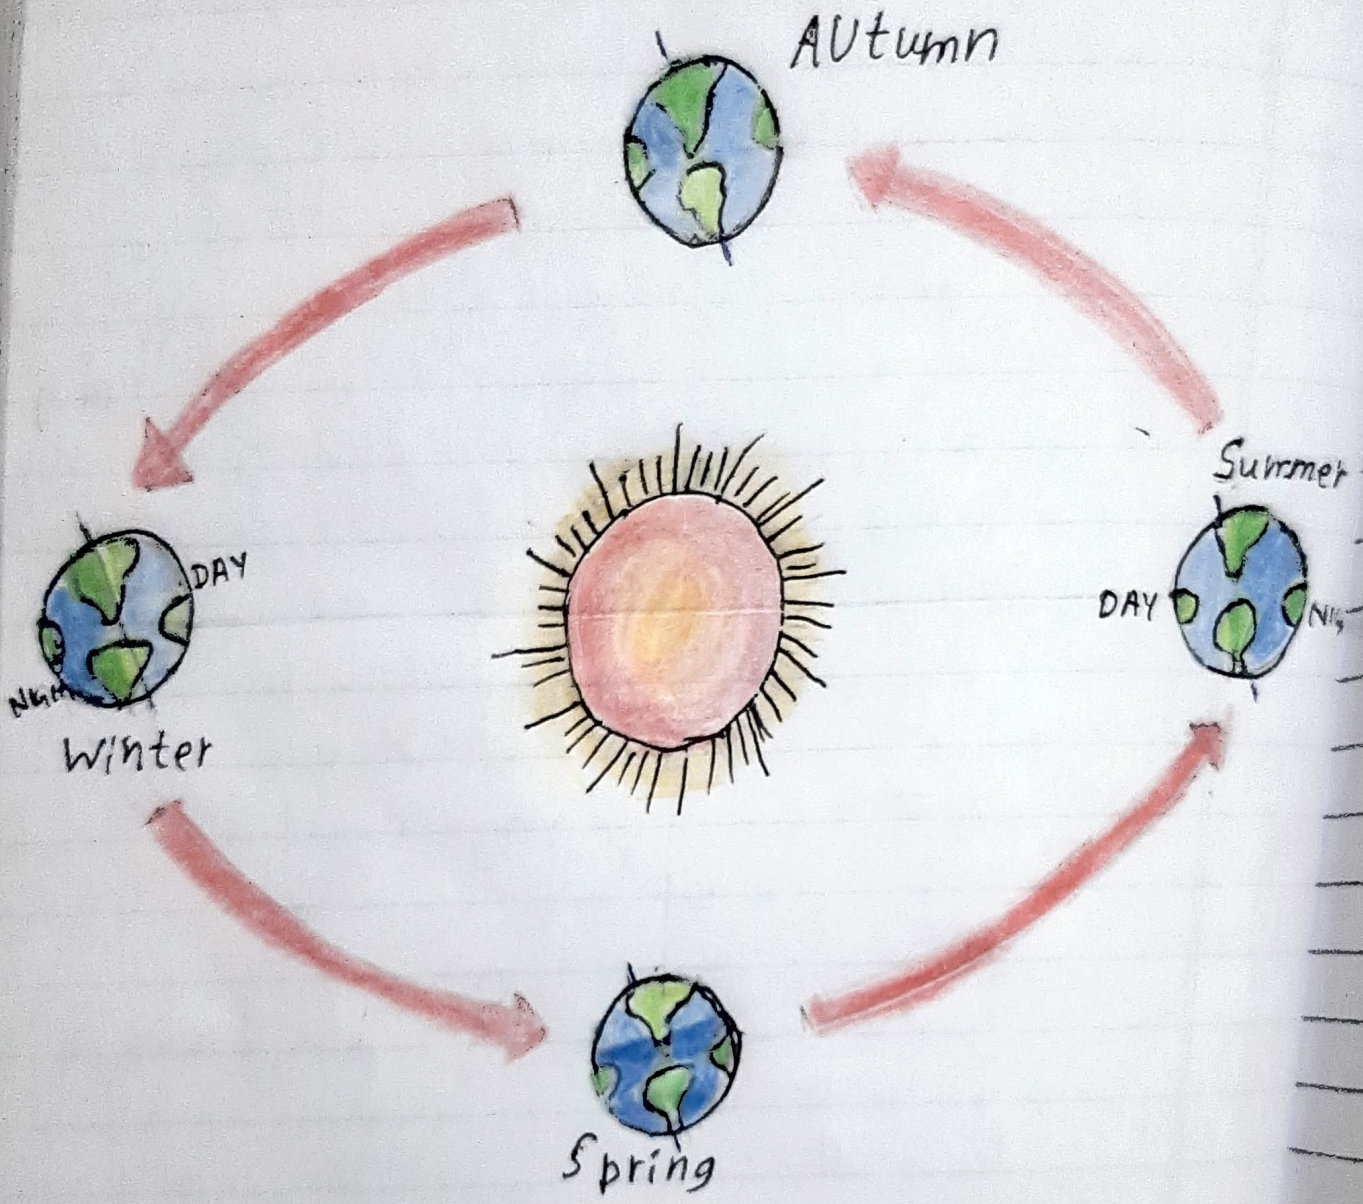 AUtumn
Summer
DAY
DAY
Winter
Spring